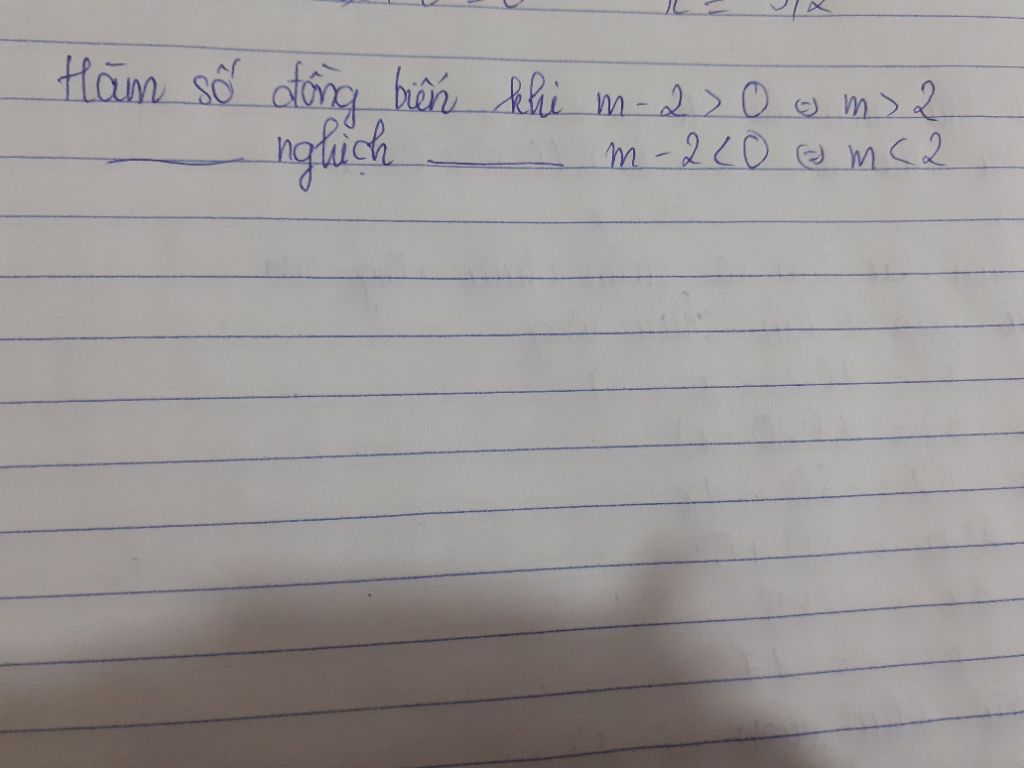 Hàm số đồng biến khi m - 2 > 0 ⇔ m > 2
——— nghịch ——— m - 2 < 0 ⇔ m < 2